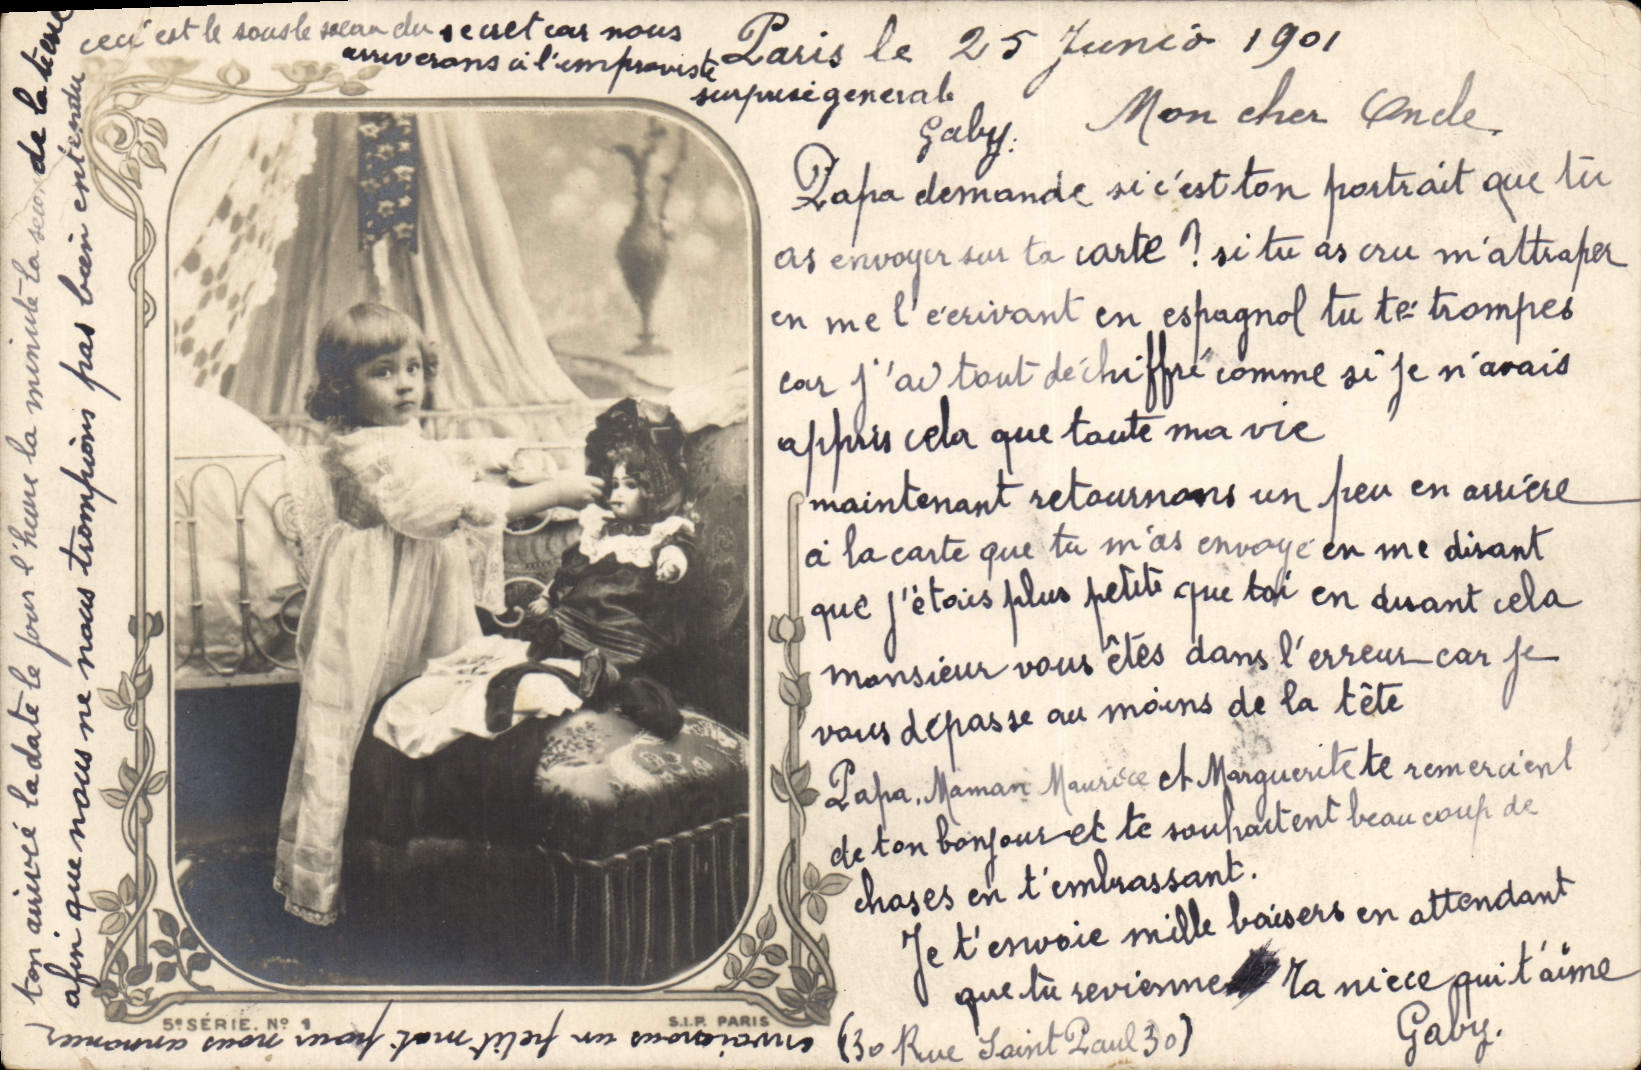 Paris le 25 Junio 1901
Mon cher Oncle.
Papa demande si c'est ton portrait que tu
as envoyer sur ta carte ? si tu as cru m'attraper
en me l'écrivant en espagnol tu te trompes
car j'ai tout déchiffré comme si je n'avais
appris cela que toute ma vie
maintenant retournons un peu en arrière
à la carte que tu m'as envoyé en me disant
que j'étais plus petite que toi en disant cela
monsieur vous êtes dans l'erreur car je
vous dépasse au moins de la tête
Papa, Maman Maurice et Marguerite te remercient
de ton bonjour et te souhaitent beaucoup de
choses en t'embrassant.
Je t'envoie mille baisers en attendant
que tu revienne Ta niece qui t'aime
Gaby.
(30 Rue Saint Paul 30)
envoie nous un petit mot pour nous annoncer
ton arrivé la date le jour l'heure la minute la seconde de la tierce
afin que nous ne nous trompions pas bien entendu
ceci est le sous le sceau du secret car nous
arriverons à l'improviste
surprise generale
Gaby.
5e SÉRIE. No 1
S.I.P. PARIS